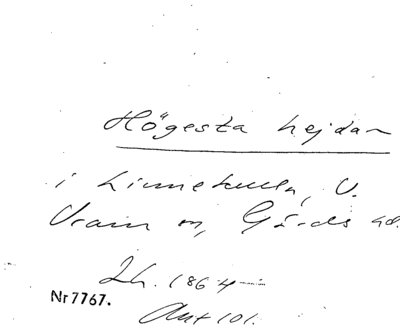 Högesta hejdan
i Linnekulla, V.
Vram sn, Gärds hd.
Lh. 1864
Nr 7767.
Ant 101.